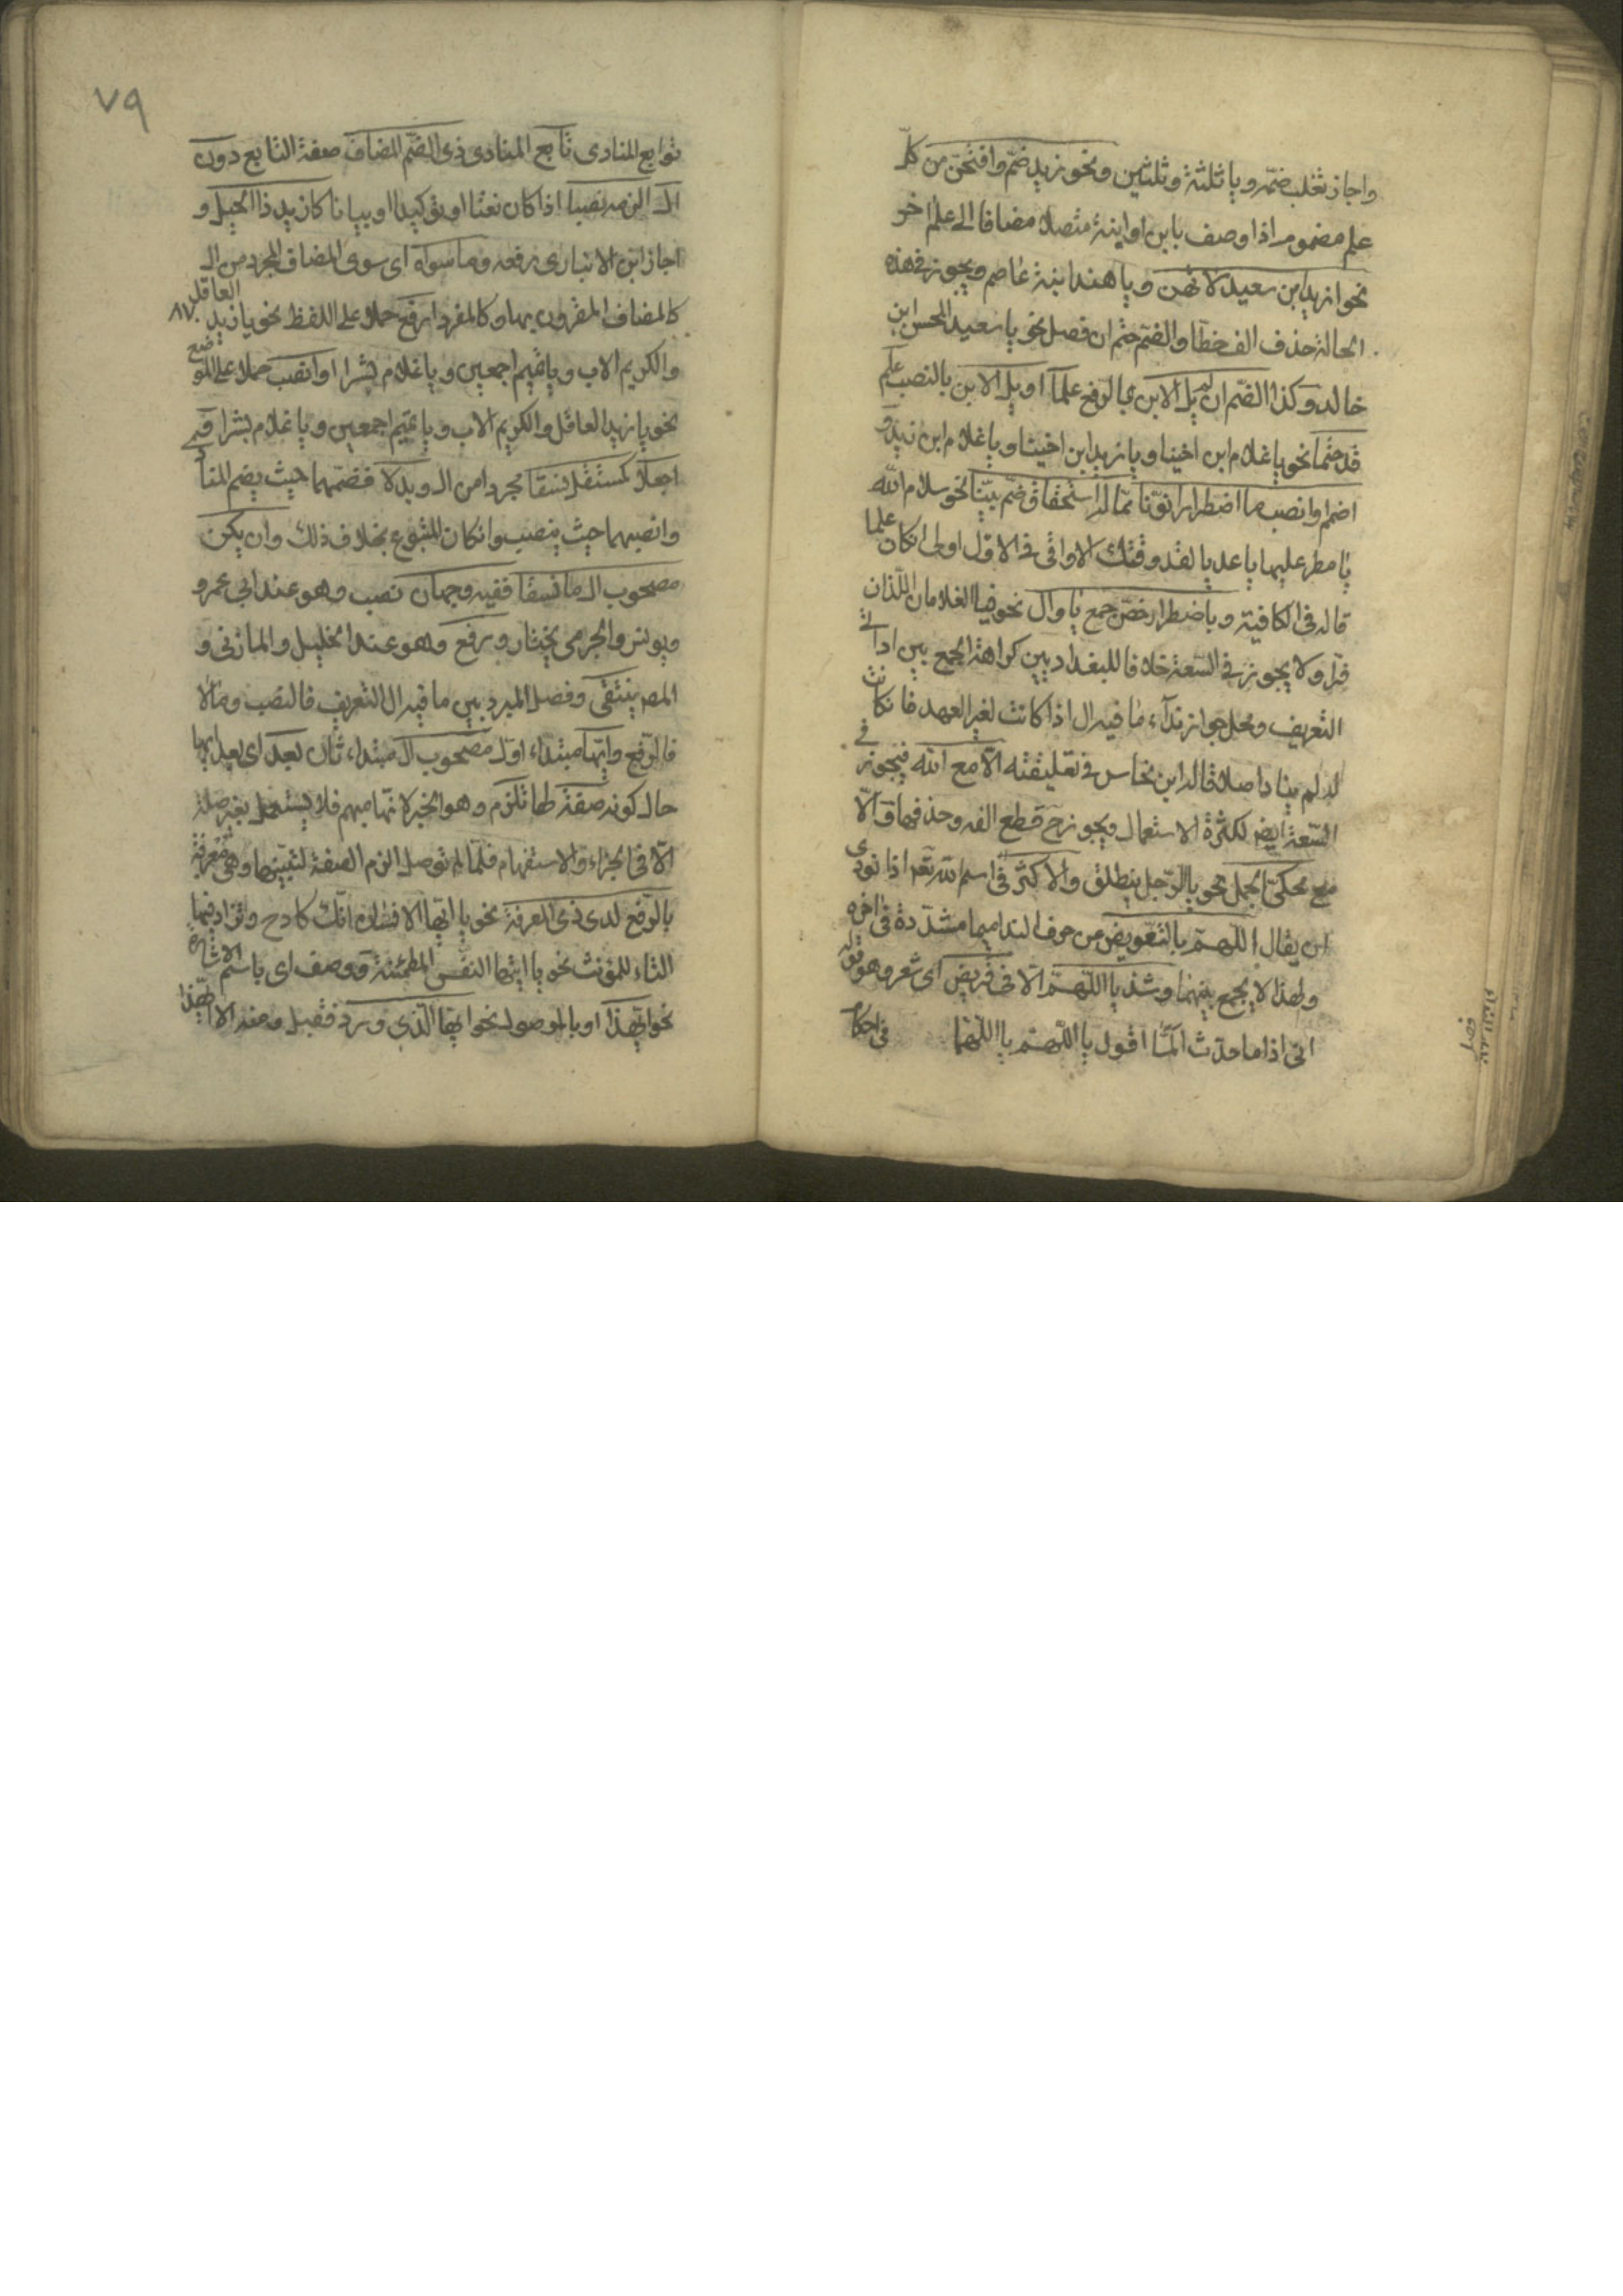 واجاز ثعلب ضمه ويا ثلثة وثلثين ونحو زيد ضم وافتحن من كل
علم مضموم اذا وصف بابن او ابنة متصلا مضافا الى علم اخر
نحو ازيد ابن سعيد لا تهن ويا هند ابنة عاصم ويجوز في هذه
الحالة حذف الف خطا والضم حتم ان فصل نحو يا سعيد المحسن ابن
خالد وكذا الضم ان لم يل الابن بالرفع علما او يل الابن بالنصب علم
قد حتما نحو يا غلام ابن اخينا ويا زيد ابن اخينا ويا غلام ابن زيد و
اضمم وانصب ما اضطرارا نونا مما له استحقاق ضم بينا نحو سلام الله
يا مطر عليها يا عديا لقد وقتك الاواقى فى الاول اولى ان كان علما
قاله فى الكافية وباضطرار خص جمع يا وال نحو فيا الغلامان اللذان
فرا ولا يجوز فى السعة خلافا للبغداديين كراهة الجمع بين اداتى
التعريف ومحل جواز نداء ما فيه ال اذا كانت لغير العهد فان كانت
له لم يناد اصلا قاله ابن نحاس فى تعليقته الا مع الله فيجوز فى
السعة ايضا لكثرة الاستعمال ويجوز ح قطع الفه وحذفها والا
مع محكى الجمل نحو يا الرجل ينطلق والاكثر فى اسم الله تعه اذا نودى
ان يقال اللهم بالتعويض من حرف الندا ميما مشددة فى اخره
ولهذا لا يجمع بينهما وشذ يا اللهم الا فى قريض اى شعر وهو قوله
انى اذا ما حدث المّا اقول يا اللهم يا اللهما فى احكام
٧٩
توابع المنادى تابع المنادى ذى الضم المضاف صفة التابع دون
ال الزمه نصبا اذا كان نعتا او توكيدا او بيانا كازيد ذا الحيل و
اجاز ابن الانبارى رفعه وما سواه اى سوى المضاف المجرد من ال
كالمضاف المقرون بها وكالمفرد ارفع حملا على اللفظ نحو يا زيد العاقل
والكريم الاب ويا تميم اجمعين ويا غلام بشرا او انصب حملا على الموضع
نحو يا زيد العاقل والكريم الاب ويا تميم اجمعين ويا غلام بشرا و
اجعلا كمستقل نسقا مجردا من ال وبدلا فضمهما حيث يضم المنا
وانصبهما حيث ينصب وان كان المتبوع بخلاف ذلك وان يكن
مصحوب ال ما نسقا ففيه وجهان نصب وهو عند ابى عمرو
ويونس والجرمى يختار ورفع وهو عند الخليل والمازنى و
المصه ينتقى وفصل المبرد بين ما فيه ال التعريف فالنصب ومالا
فالرفع وايها مبتداء اول مصحوب ال مبتداء ثان بعد اى بعد ايها
حال كونه صفة لها تلزم وهو الخبر لانها مبهم فلا يستعمل بغير صلة
الا فى الجزاء والاستفهام فلما لم توصل الزم الصفة لتبينها وهى معرفة
بالرفع لدى ذى المعرفة نحو يا ايها الانسان انك كادح وتزاد فيها
التاء للمؤنث نحو يا ايتها النفس المطمئنة ووصف اى باسم الاشارة
نحو ايهذا او بالموصول نحو ايها الذى ورد فقبل ومنه الا ايهذا